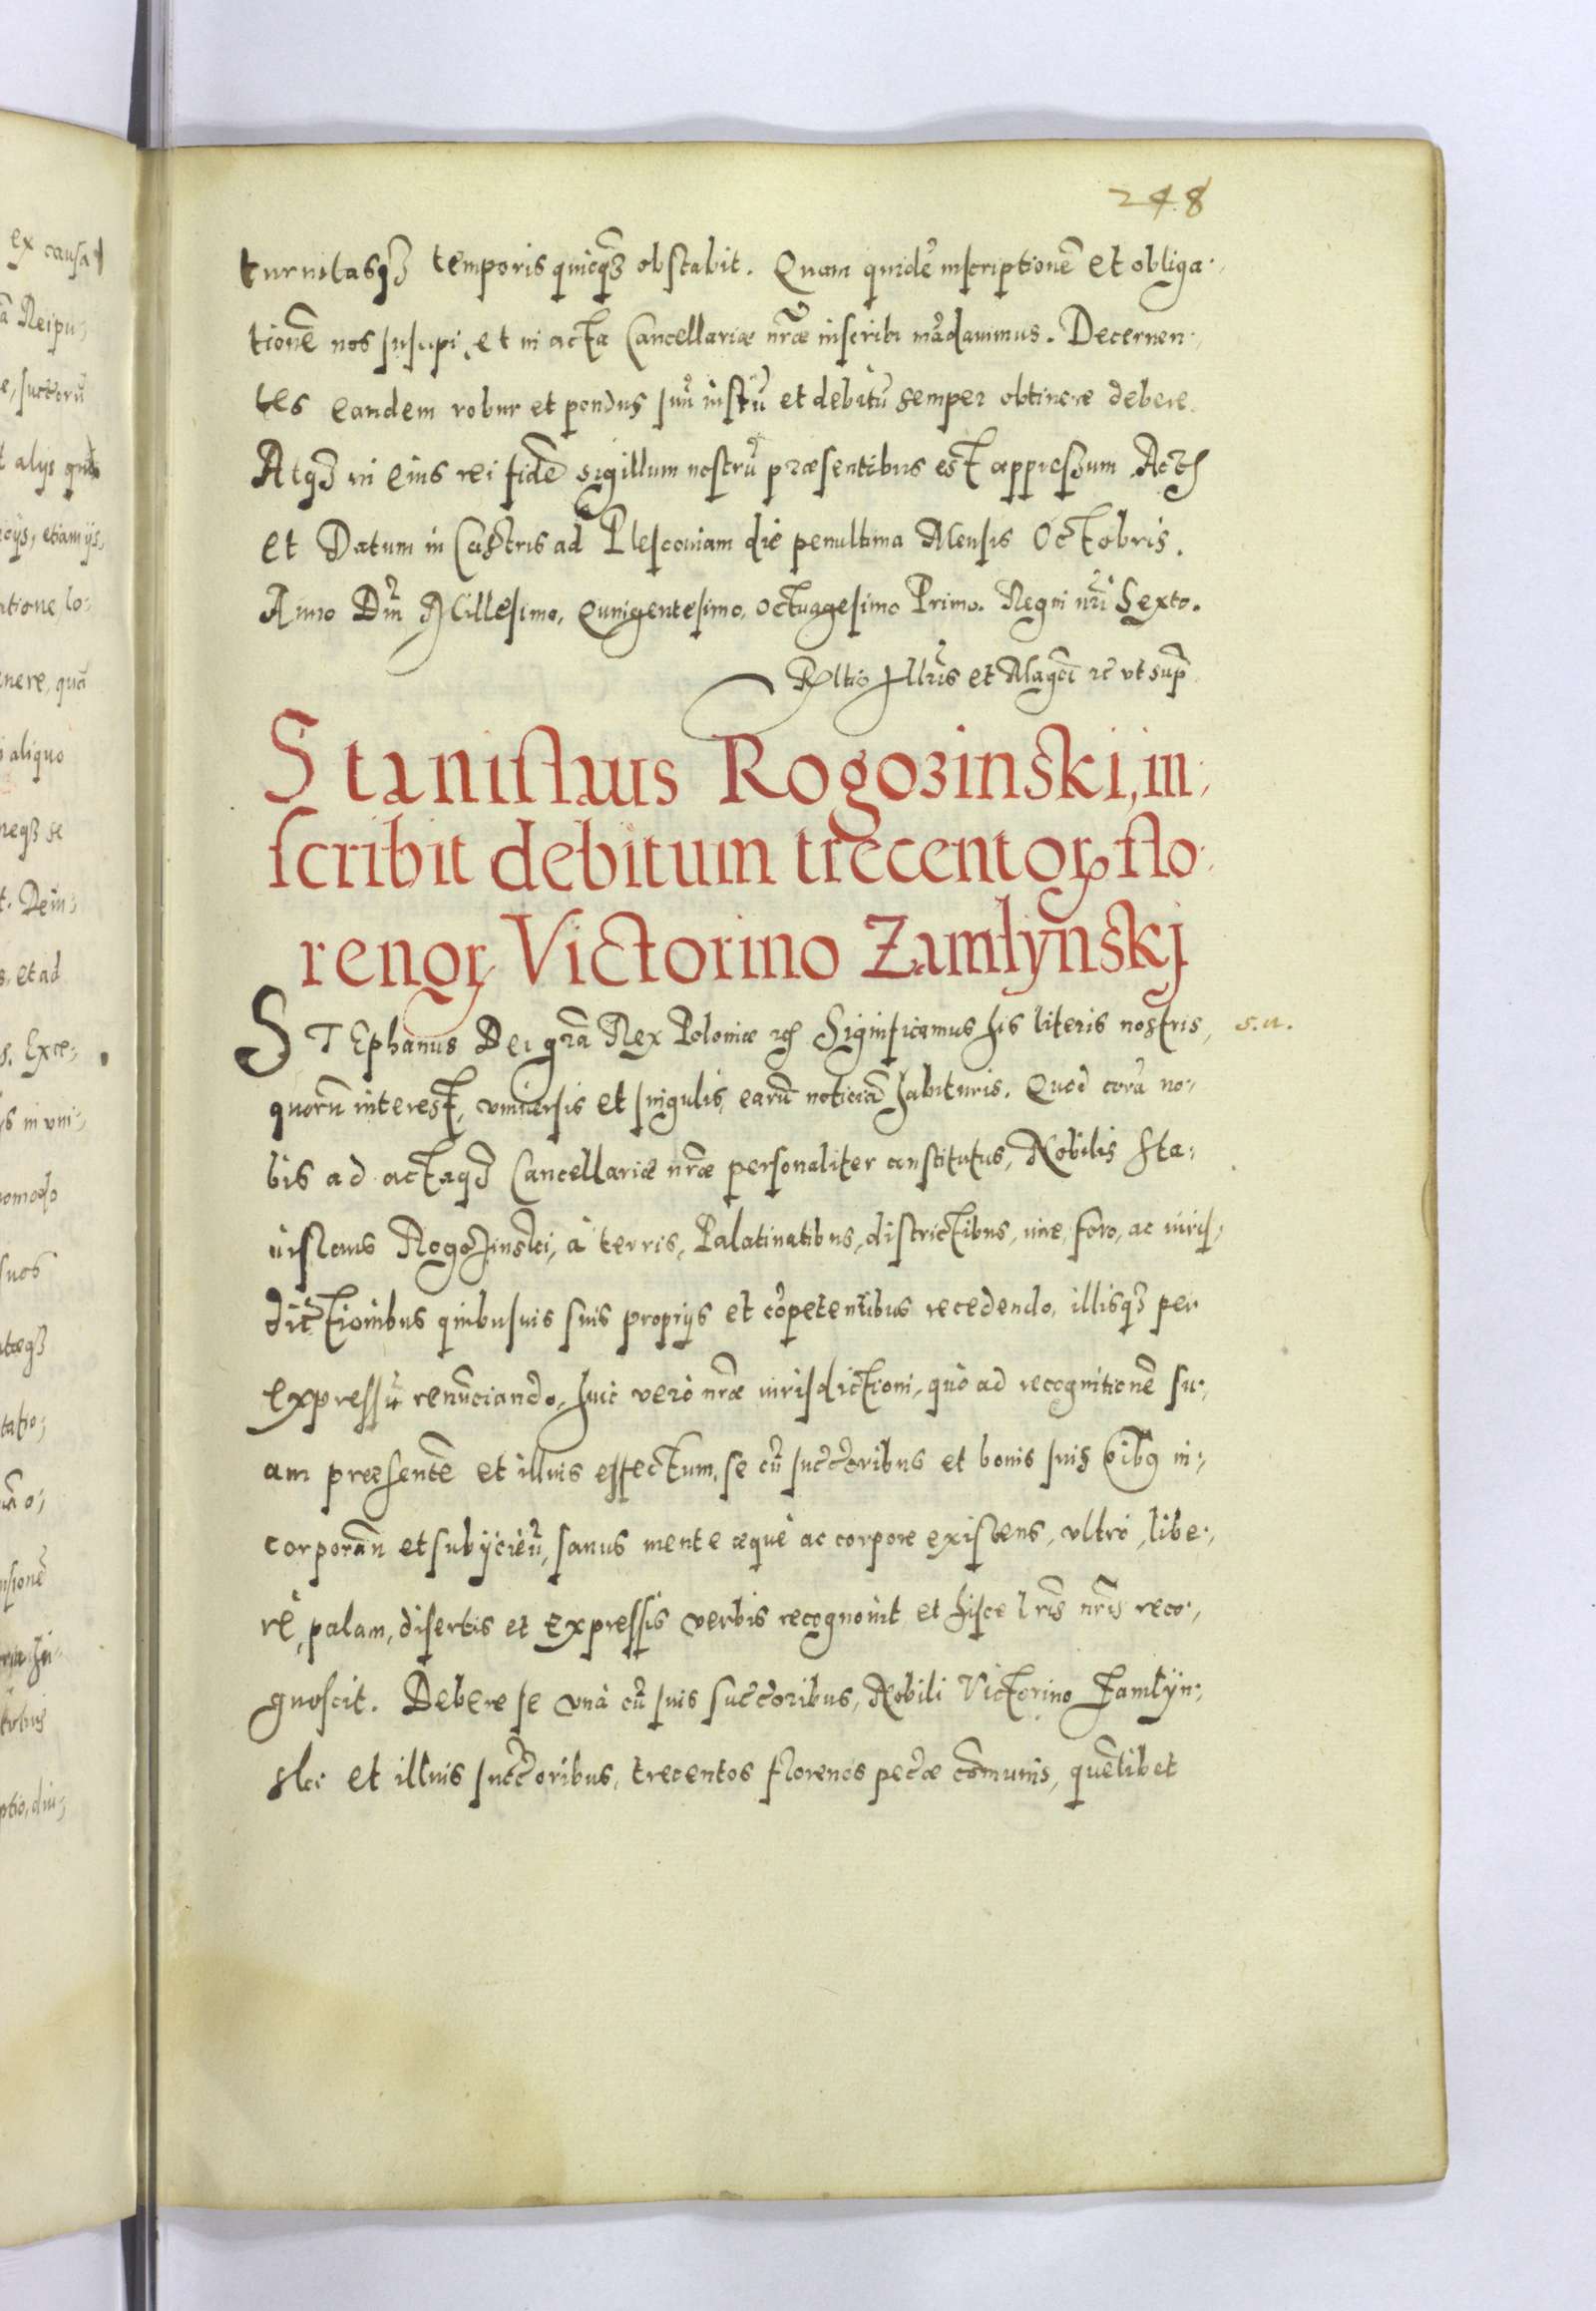 248
turnitasq3 temporis quicq3 obstabit. Quam quidē inscriptionē et obliga:
tionē nos suscipi, et in acta Cancellariæ nrãe inscribi mãdauimus. Decernen:
tes eandem robur et pondus suū iustū et debitū semper obtinere debere.
Atq3 in eius rei fidē sigillum nostrū præsentibus est appressum Act
et Datum in Castris ad Plescouiam die penultima Mensis Octobris.
Anno Dñi Millesimo, Quingentesimo, Octuagesimo Primo. Regni nr̃i Sexto.
Rltio Illr̃is et Magc̃i rc̃ vt sup̃
Stanislaus Rogozinski, in:
scribit debitum trecentoꝝ flo:
renoꝝ Victorino Zamłynskj
STEphanus Dei gr̃a Rex Poloniæ rc̃ Significamus his literis nostris,
s.n.
quorū interest, vniuersis et singulis, earū noticiā habituris. Quod corā no:
bis ad actaq3 Cancellariæ nrãe personaliter constitutus, Nobilis Sta:
nislaus Rogozinski, à terris, Palatinatibus, districtibus, iure, foro, ac iuris:
dictionibus quibusuis suis proprijs et cōpetentibus recedendo, illisq3 per
expressū renūciando, huic verò nrãe iurisdictioni, quo ad recognitionē su:
am præsentē et illius effectum, se cū succ̃oribus et bonis suis oĩbꝯ in:
corporān et subijciēn, sanus mente æquè ac corpore existens, vltrò, libe:
rè, palam, disertis et expressis verbis recognouit et hisce lr̃is nr̃is reco:
gnoscit. Debere se vnà cū suis succ̃oribus, Nobili Victorino Zamłyn:
ski et illius succ̃oribus, trecentos florenos pec̃æ cōmunis, quēlibet